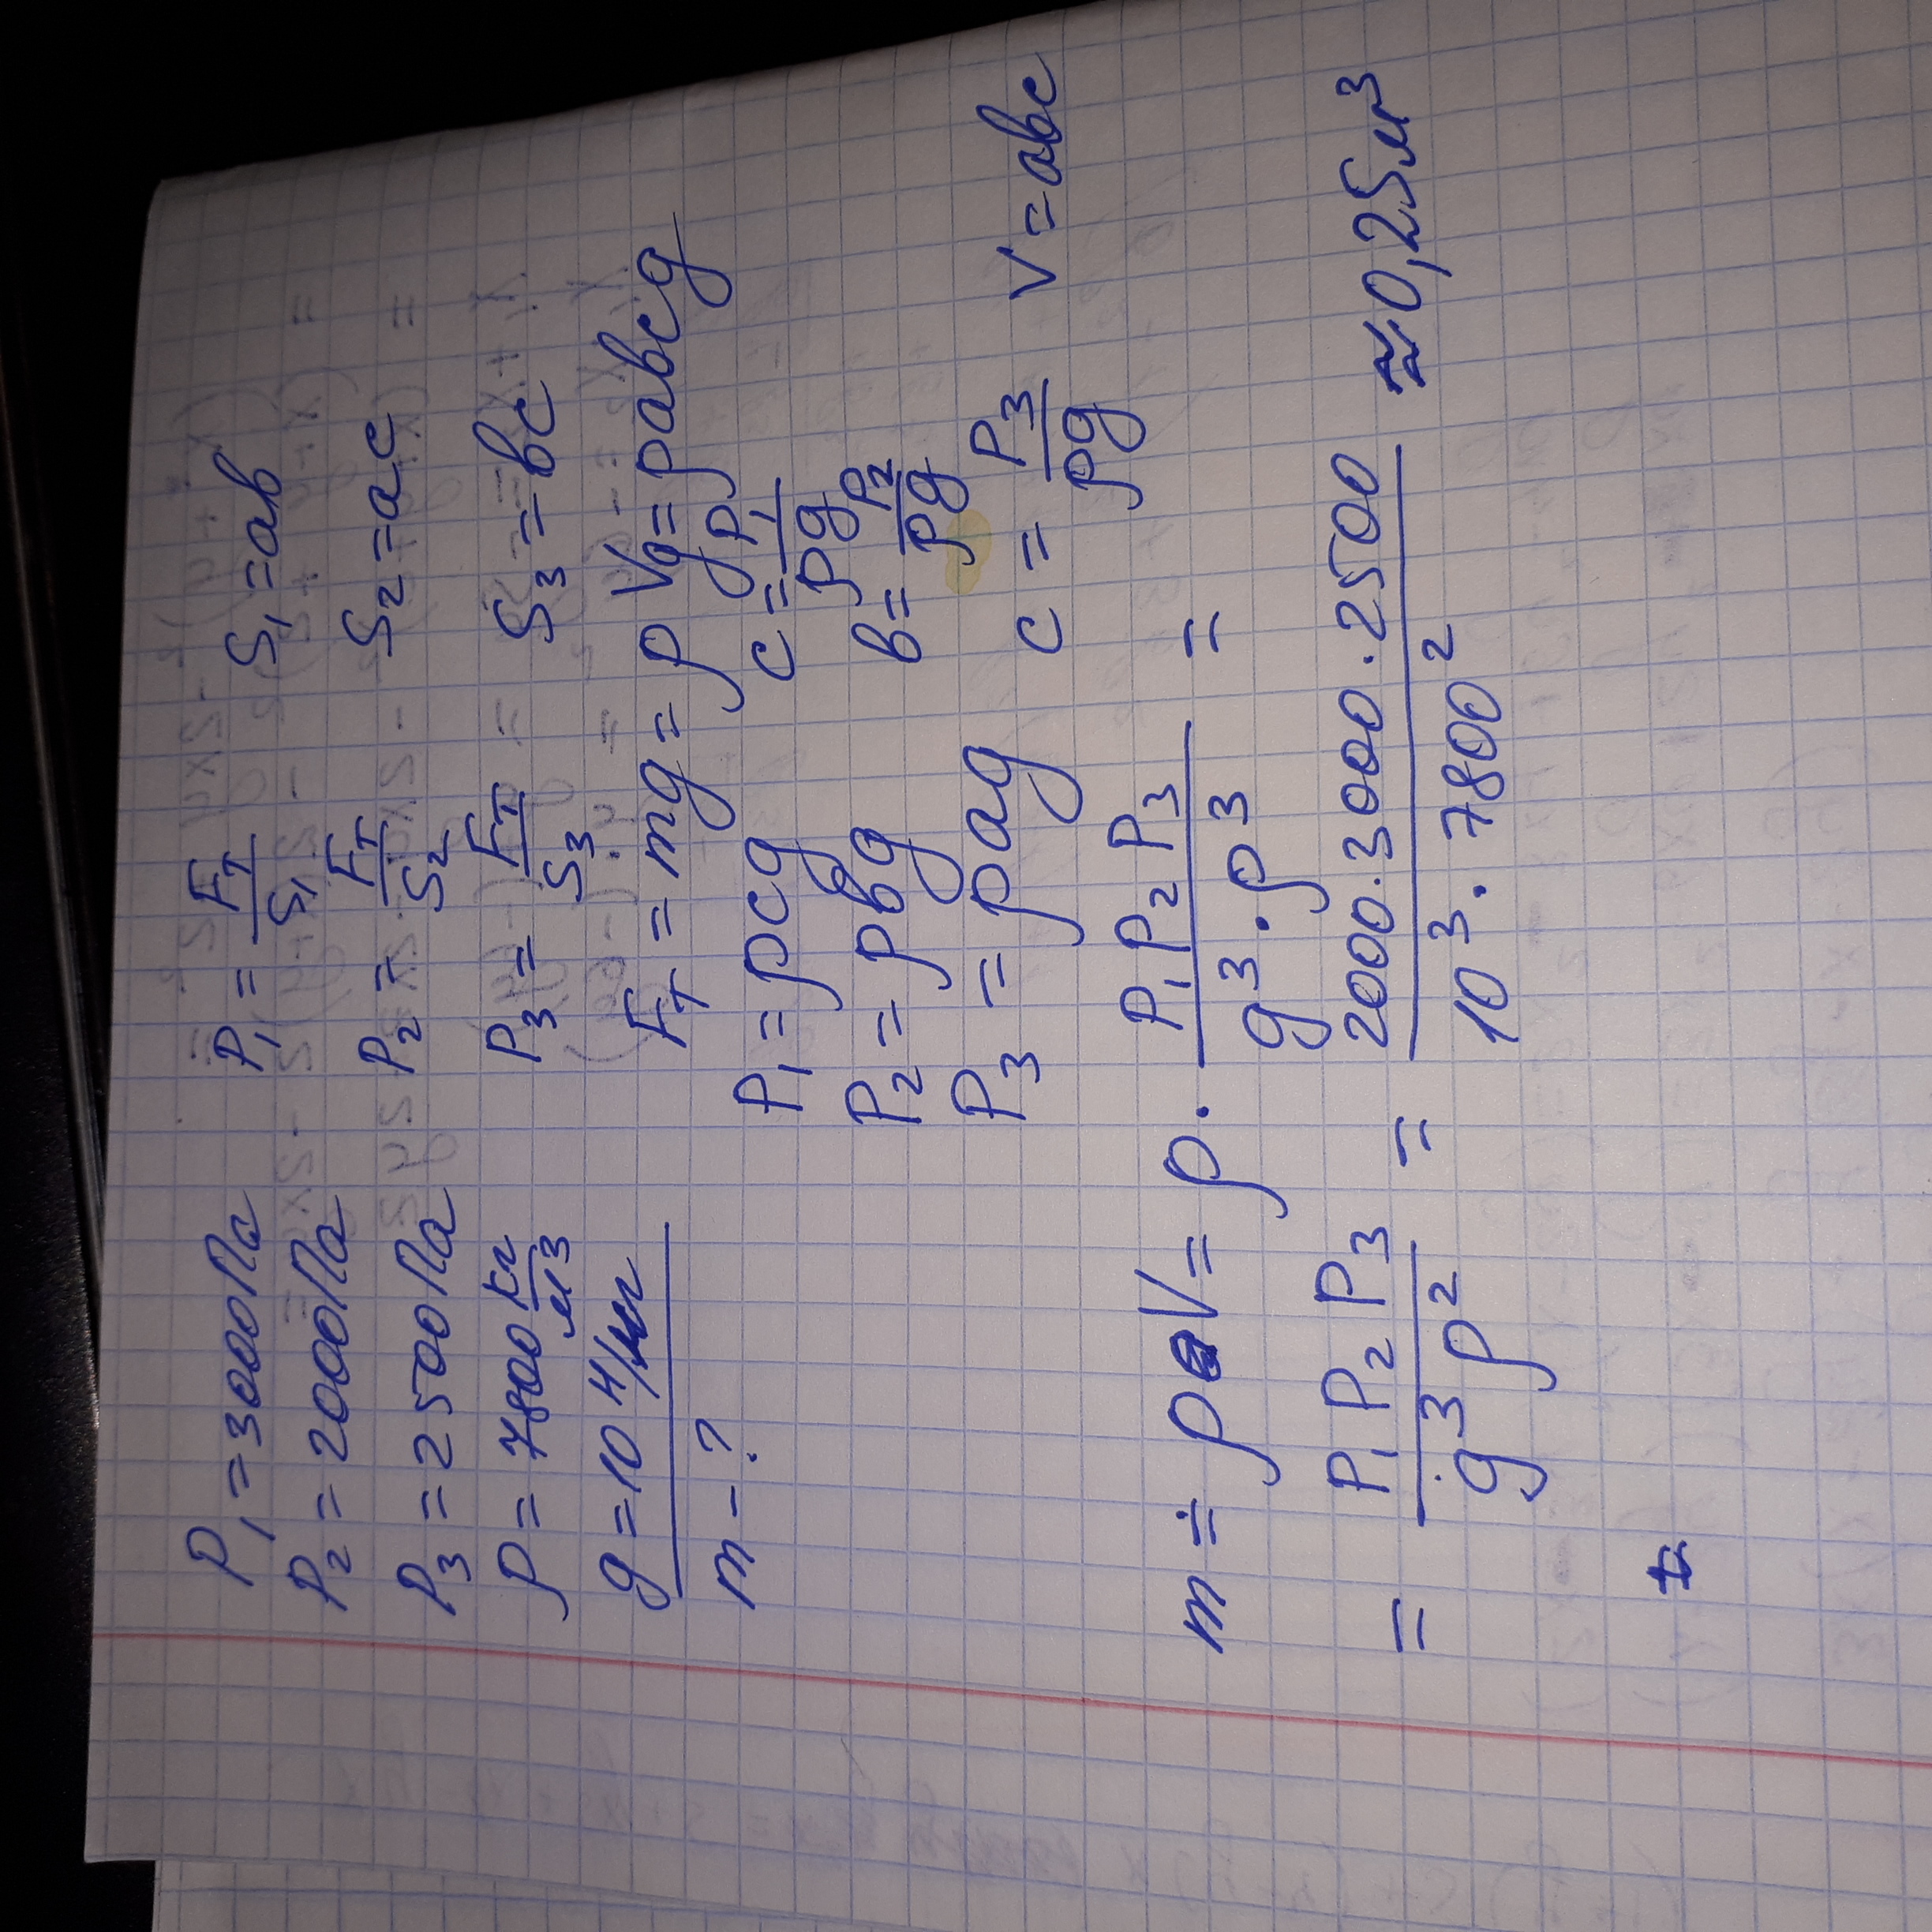 P₁ = 3000 Па
P₂ = 2000 Па
P₃ = 2500 Па
ρ = 7800 кг/м3
g = 10 Н/кг
m - ?
P₁ = Fт/S₁ S₁ = ав
P₂ = Fт/S₂ S₂ = ас
P₃ = Fт/S₃ S₃ = вс
Fт = mg = ρVg = ρавсg
P₁ = ρcg c = P₁/ρg
P₂ = ρвg в = P₂/ρg
P₃ = ρag c = P₃/ρg V = авс
m = ρV = ρ · P₁P₂P₃/g³·ρ³ =
= P₁P₂P₃/g³ρ² = 2000·3000·2500/10³·7800² ≈ 0,25 м³